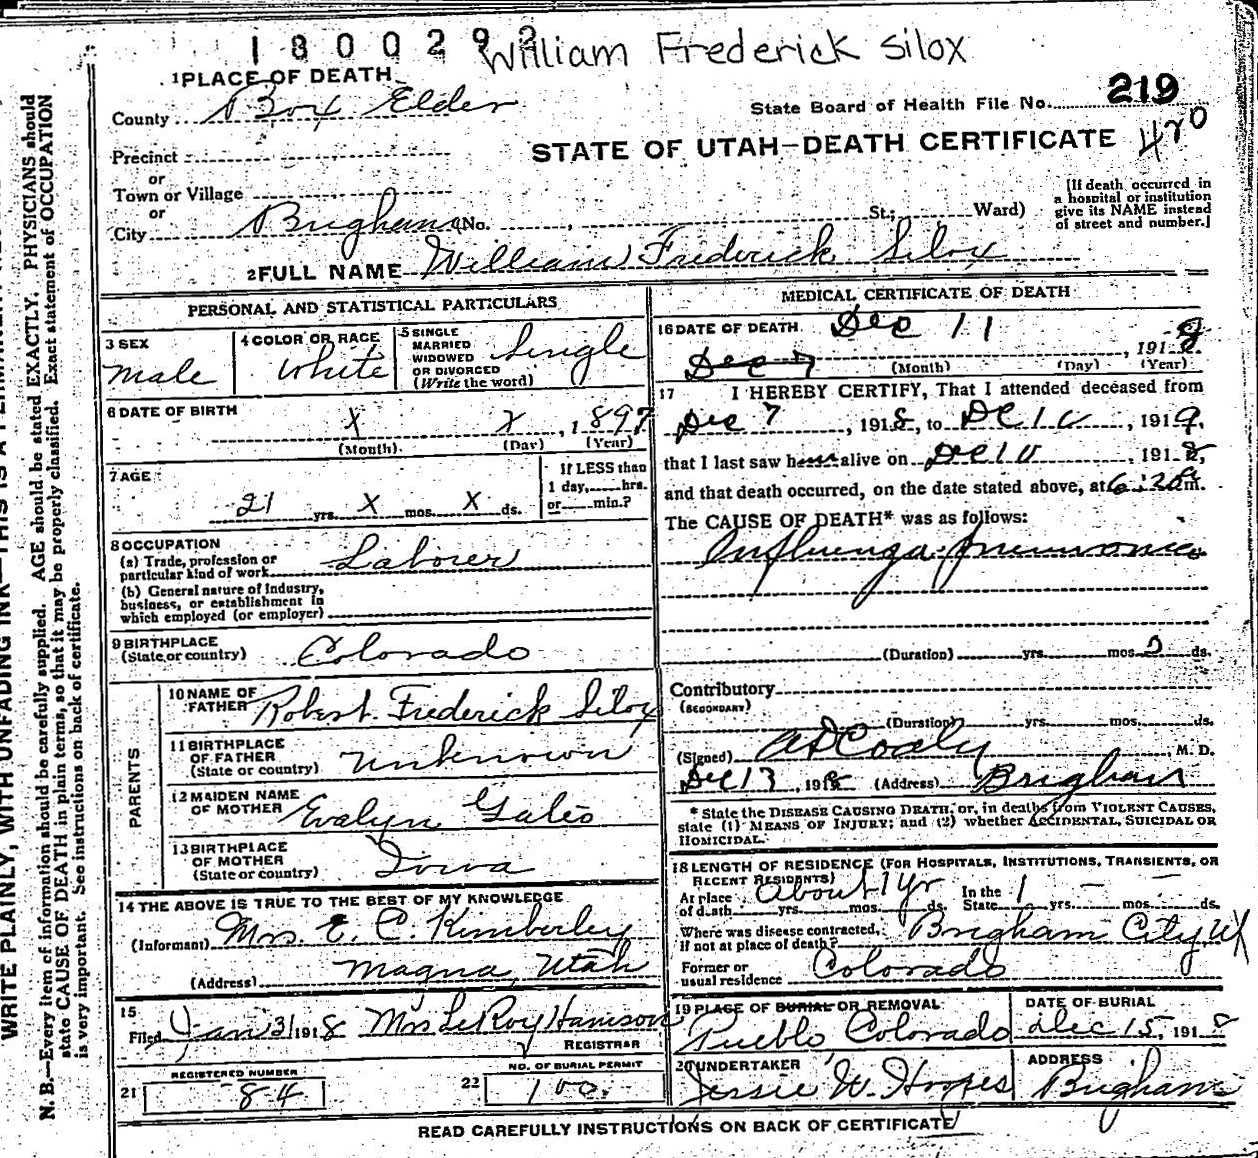 1800292 William Frederick Silox
1 PLACE OF DEATH
County Box Elder
State Board of Health File No. 219
Precinct
STATE OF UTAH—DEATH CERTIFICATE 470
or
Town or Village
or
City Brigham (No. , St.; Ward)
[If death occurred in
a hospital or institution
give its NAME instead
of street and number.]
2 FULL NAME William Frederick Silox
PERSONAL AND STATISTICAL PARTICULARS
3 SEX
Male
4 COLOR OR RACE
White
5 SINGLE
MARRIED
WIDOWED
OR DIVORCED
(Write the word)
Single
6 DATE OF BIRTH
X X , 1897
(Month) (Day) (Year)
7 AGE
21 yrs. X mos. X ds.
If LESS than
1 day, hrs.
or min.?
8 OCCUPATION
(a) Trade, profession or
particular kind of work Laborer
(b) General nature of industry,
business, or establishment in
which employed (or employer)
9 BIRTHPLACE
(State or country) Colorado
PARENTS
10 NAME OF
FATHER Robert Frederick Silox
11 BIRTHPLACE
OF FATHER
(State or country) Unknown
12 MAIDEN NAME
OF MOTHER Evalyn
13 BIRTHPLACE
OF MOTHER
(State or country) Iowa
14 THE ABOVE IS TRUE TO THE BEST OF MY KNOWLEDGE
(Informant) Mrs. E. C. Kimberley
(Address) Magna, Utah
15
Filed Jan 3 1918 Mrs LeRoy Harrison
REGISTRAR
REGISTERED NUMBER
21 84
NO. OF BURIAL PERMIT
22 100
MEDICAL CERTIFICATE OF DEATH
16 DATE OF DEATH Dec 11
Dec 7 , 1918
(Month) (Day) (Year)
17 I HEREBY CERTIFY, That I attended deceased from
Dec 7 , 1918, to Dec 10 , 1919,
that I last saw him alive on Dec 10 , 1918,
and that death occurred, on the date stated above, at 6:20 m.
The CAUSE OF DEATH* was as follows:
Influenza-pneumonia
(Duration) yrs. mos. ds.
Contributory
(SECONDARY)
(Duration) yrs. mos. ds.
(Signed) , M. D.
Dec 13 , 1918 (Address) Brigham
* State the DISEASE CAUSING DEATH, or, in deaths from VIOLENT CAUSES,
state (1) MEANS OF INJURY; and (2) whether ACCIDENTAL, SUICIDAL OR
HOMICIDAL.
18 LENGTH OF RESIDENCE (FOR HOSPITALS, INSTITUTIONS, TRANSIENTS, OR
RECENT RESIDENTS)
At place
of death About 1 yr yrs. mos. ds.
In the
State 1 yrs. — mos. — ds.
Where was disease contracted,
if not at place of death? Brigham City
Former or
usual residence Colorado
19 PLACE OF BURIAL OR REMOVAL
Pueblo Colorado
DATE OF BURIAL
Dec 15, 1918
20 UNDERTAKER
Jessie W. Hoopes
ADDRESS
Brigham
READ CAREFULLY INSTRUCTIONS ON BACK OF CERTIFICATE
WRITE PLAINLY, WITH UNFADING INK—THIS IS A PERMANENT
N. B.—Every item of information should be carefully supplied. AGE should be stated EXACTLY. PHYSICIANS should
state CAUSE OF DEATH in plain terms, so that it may be properly classified. Exact statement of OCCUPATION
is very important. See instructions on back of certificate.